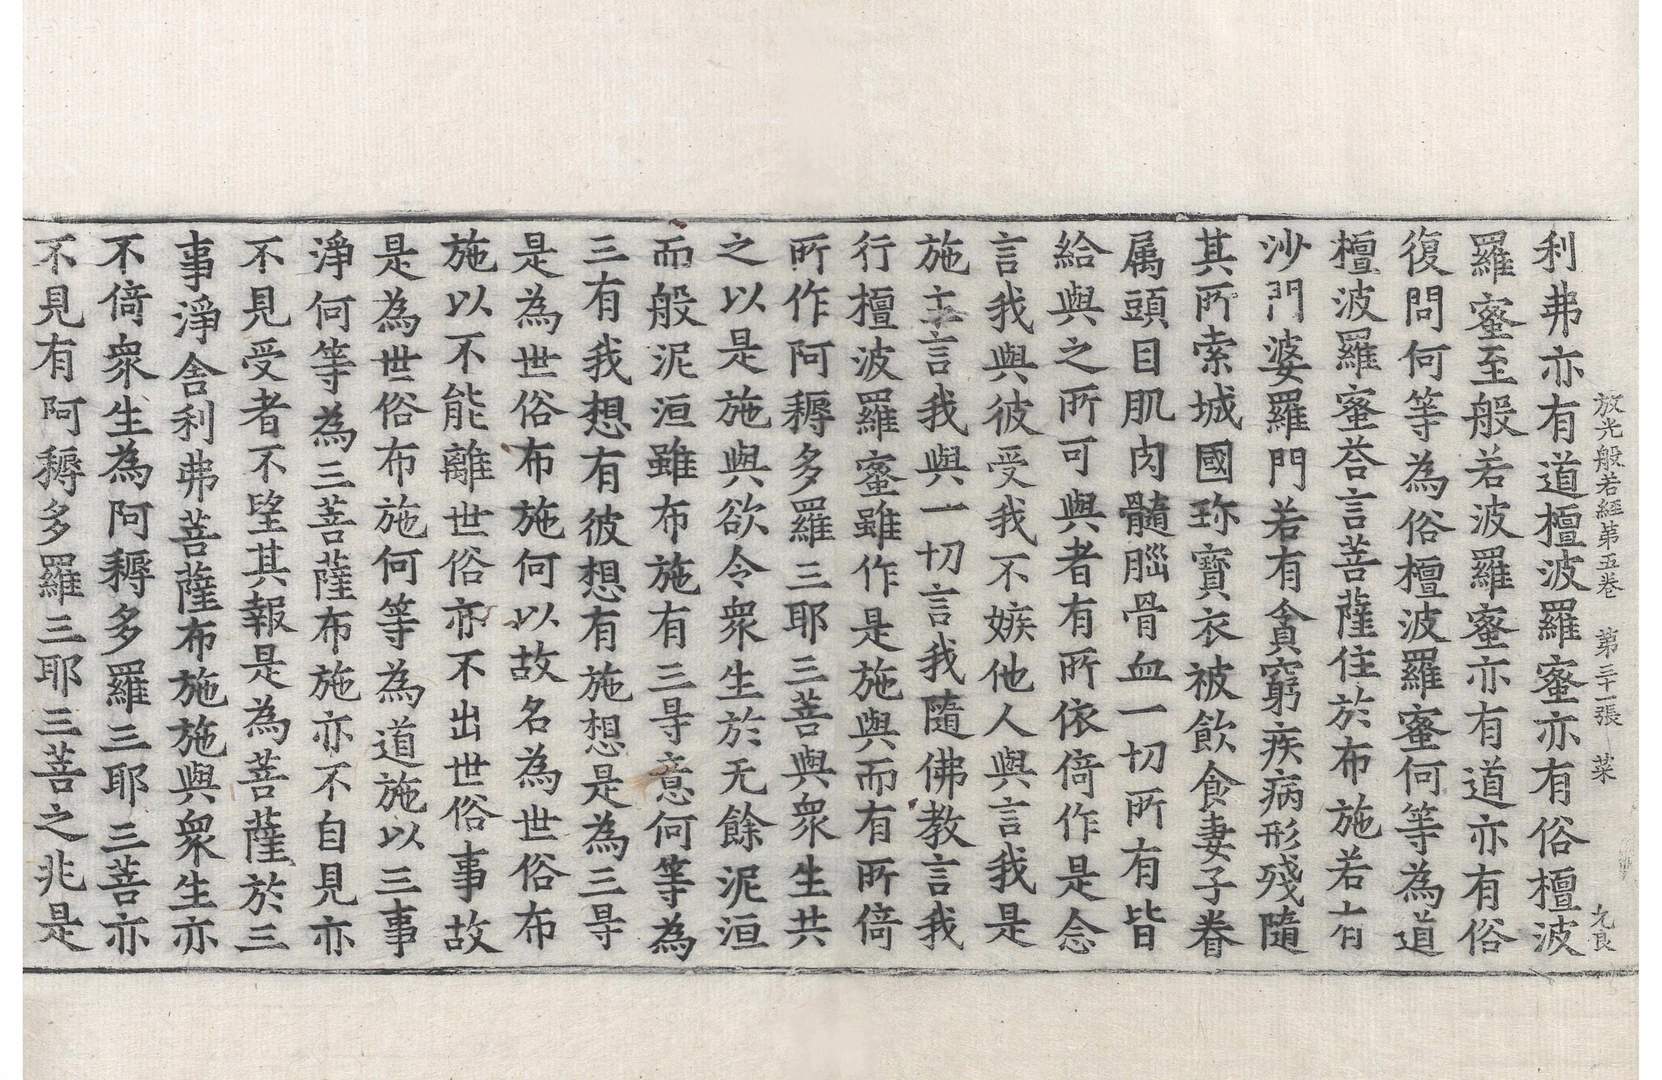 放光般若經第五卷　第三十一張　菜　允良
利弗亦有道檀波羅蜜亦有俗檀波
羅蜜至般若波羅蜜亦有道亦有俗
復問何等為俗檀波羅蜜何等為道
檀波羅蜜荅言菩薩住於布施若有
沙門婆羅門若有貪窮疾病形殘隨
其所索城國珎寶衣被飲食妻子眷
属頭目肌肉髓𦛁骨血一切所有皆
給與之所可與者有所依倚作是念
言我與彼受我不嫉他人與言我是
施主言我與一切言我隨佛教言我
行檀波羅蜜雖作是施與而有所倚
所作阿耨多羅三耶三菩與衆生共
之以是施與欲令衆生於无餘泥洹
而般泥洹雖布施有三㝵意何等為
三有我想有彼想有施想是為三㝵
是為世俗布施何以故名為世俗布
施以不能離世俗亦不出世俗事故
是為世俗布施何等為道施以三事
淨何等為三菩薩布施亦不自見亦
不見受者不望其報是為菩薩於三
事淨舍利弗菩薩布施施與衆生亦
不倚衆生為阿耨多羅三耶三菩亦
不見有阿耨多羅三耶三菩之兆是